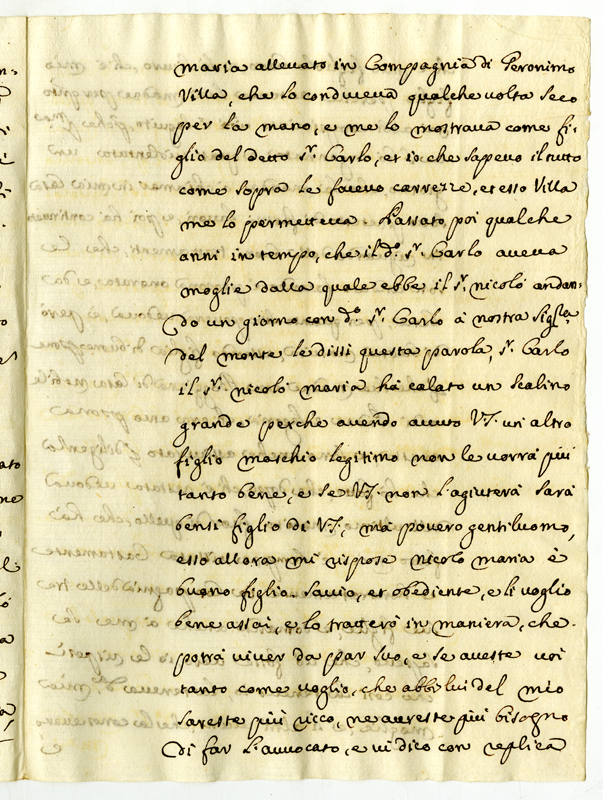 maria allevato in Compagnia di Geronimo
Villa, che lo conduceva qualche volta seco
per la mano, e me lo mostrava come fi-
glio del detto Sr. Carlo, et io che sapevo il tutto
come sopra le facevo carezze, et esso Villa
me lo permetteva. Passato poi qualche
anni in tempo, che il do. Sr. Carlo aveva
moglie dalla quale ebbe il Sr. nicolò andan-
do un giorno con do. Sr. Carlo à nostra Sigra.
del monte le dissi questa parola, Sr. Carlo
il Sr. nicolò maria hà calato un Scalino
grande perche avendo avuto V.S. un altro
figlio maschio legitimo non le vorrà più
tanto bene, e se V.S. non l'agiuterà sarà
bensi figlio di V.S., mà povero gentiluomo,
esso allora mi rispose nicolò maria è
buono figlio, savio, et obediente, e li voglio
bene assai, e lo tratterò in maniera, che
potrà viver da par suo, e se aveste voi
tanto come voglio, che abbi lui del mio
sareste più ricco, ne avreste più bisogno
di far l'avvocato, e vi dico con replica